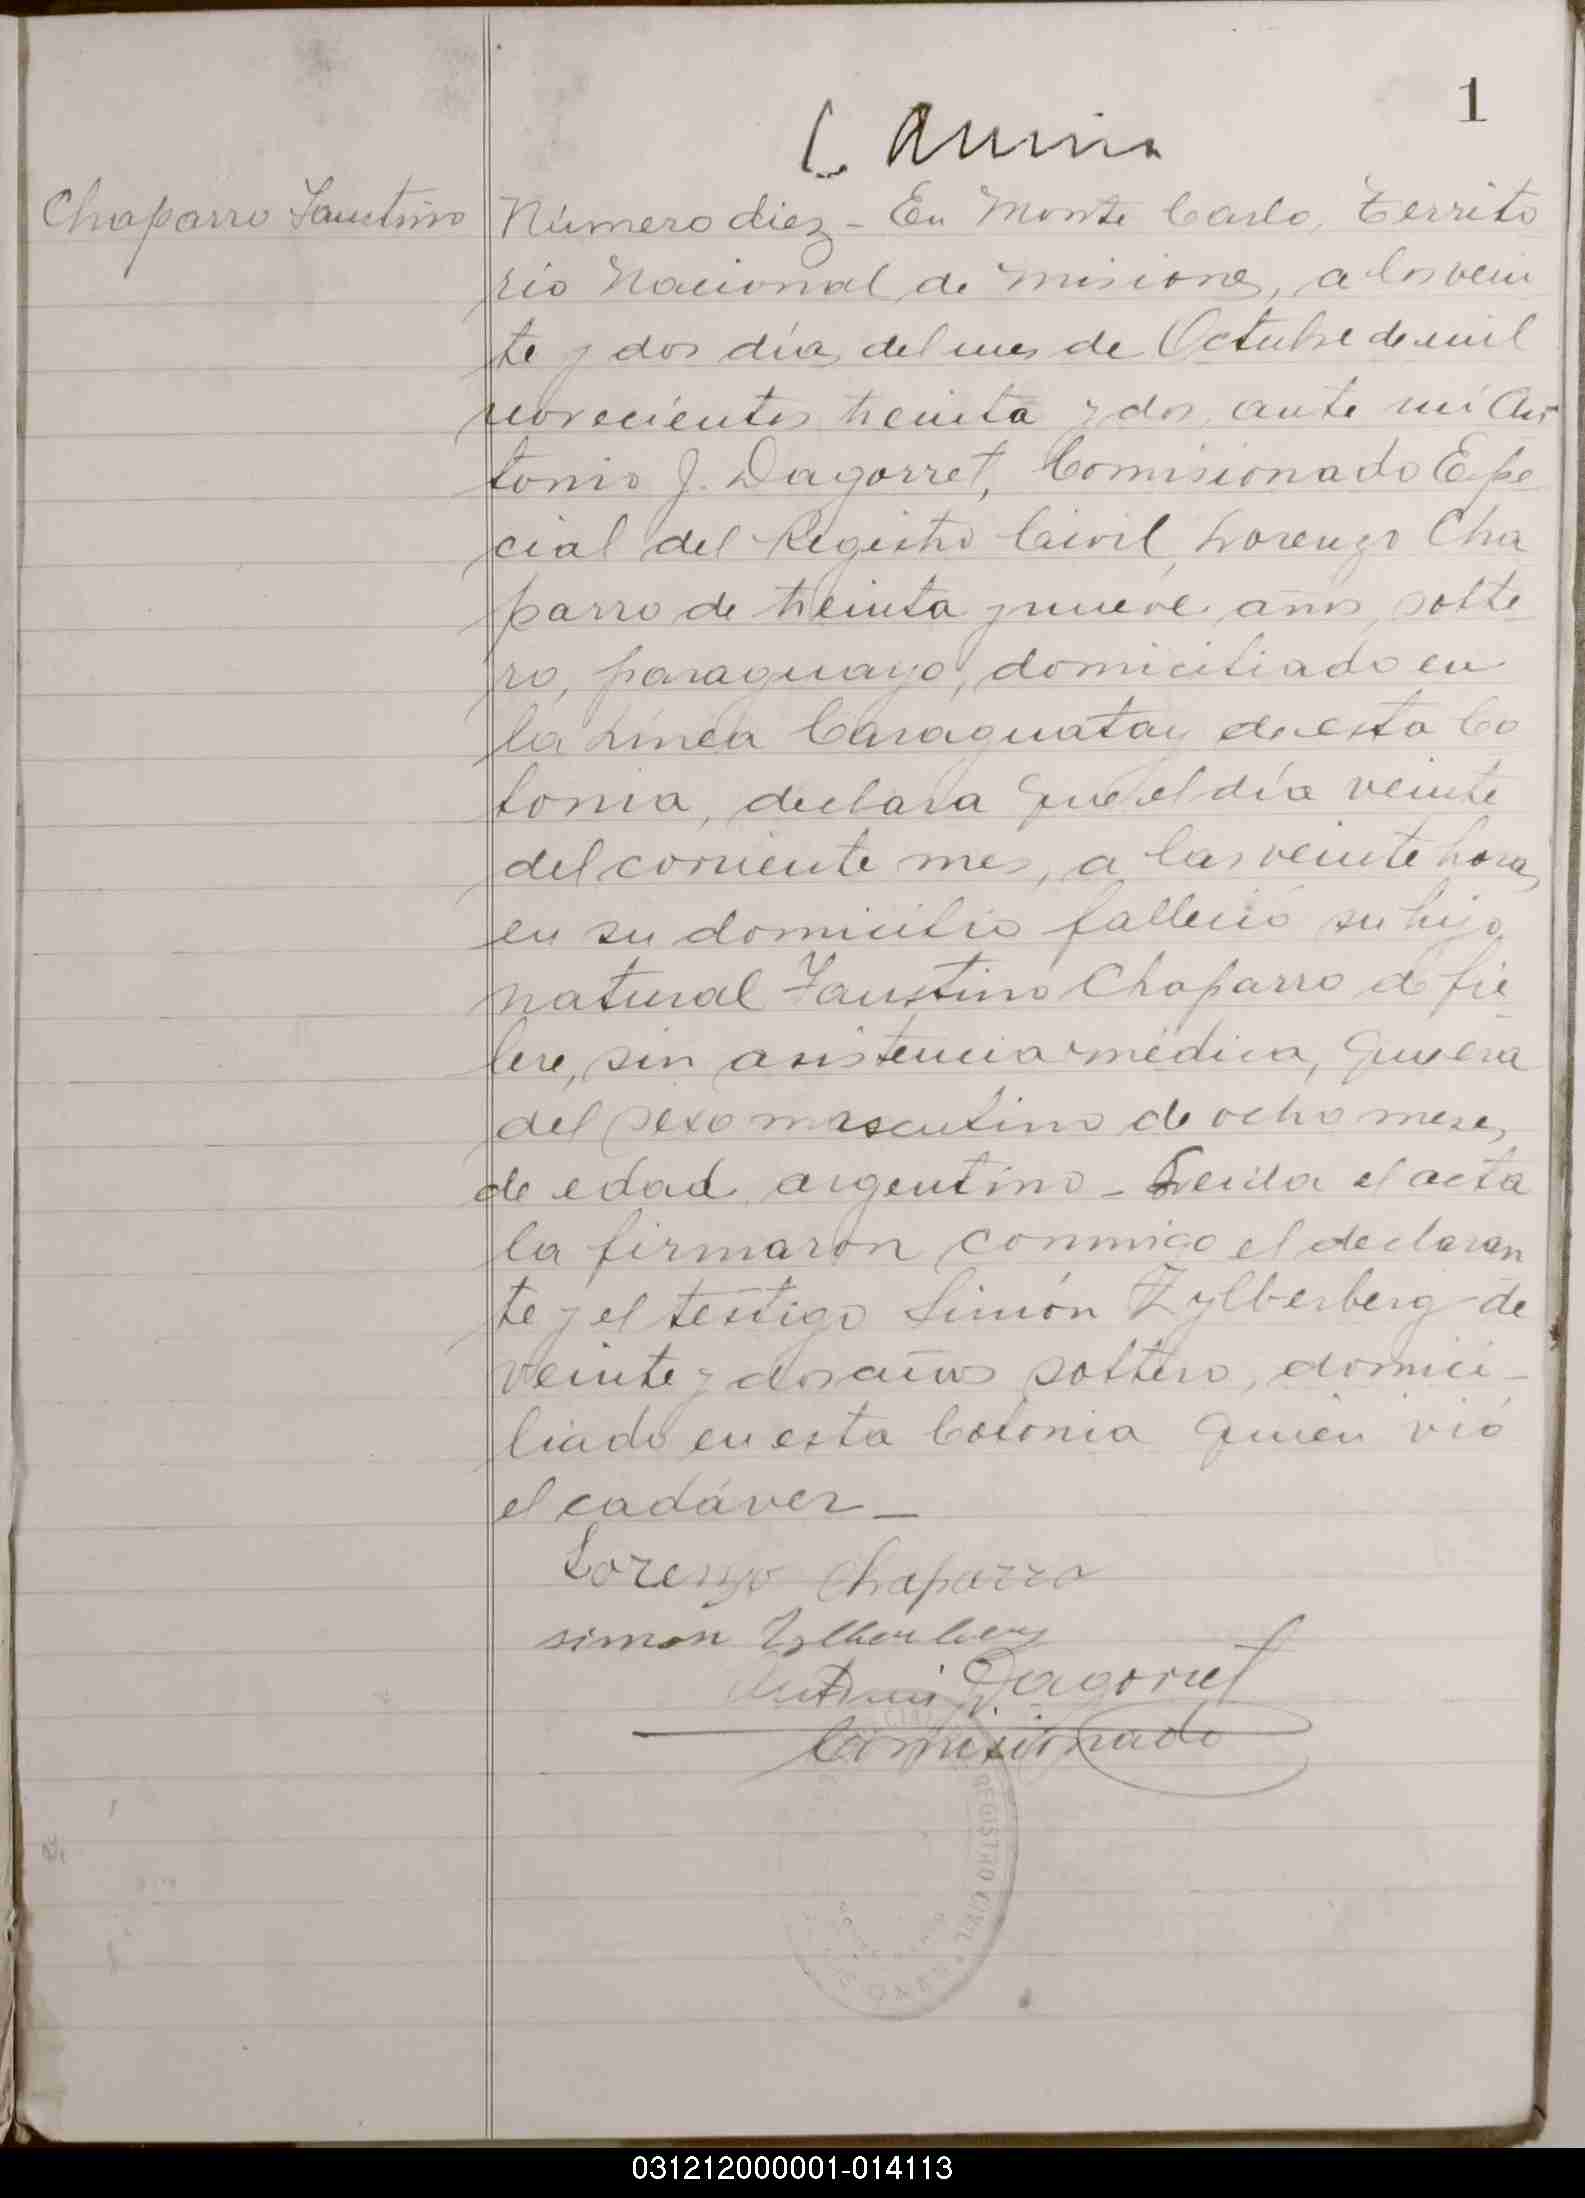 1
Chaparro Faustino
Número diez - En Monte Carlo, Territo
rio Nacional de Misiones, a los vein
te y dos días del mes de Octubre de mil
novecientos treinta y dos, ante mí An
tonio J. Dagorret, Comisionado Espe
cial del Registro Civil, Lorenzo Cha
parro de treinta y nueve años, solte
ro, paraguayo, domiciliado en
la Línea Caraguatay de esta Co
lonia, declara que el día veinte
del corriente mes, a las veinte horas,
en su domicilio falleció su hijo
natural Faustino Chaparro de fie
bre, sin asistencia médica, que era
del sexo masculino de ocho meses
de edad, argentino - Leida el acta
la firmaron conmigo el declaran
te y el testigo Simón Zylberberg de
veinte y dos años soltero, domici-
liado en esta Colonia quien vió
el cadáver -
Lorenzo Chaparro
simon Zylberberg
Antonio J. Dagorret
Comisionado
REGISTRO CIVIL
031212000001-014113